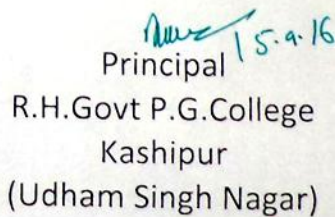 15.9.16
Principal
R.H.Govt P.G.College
Kashipur
(Udham Singh Nagar)